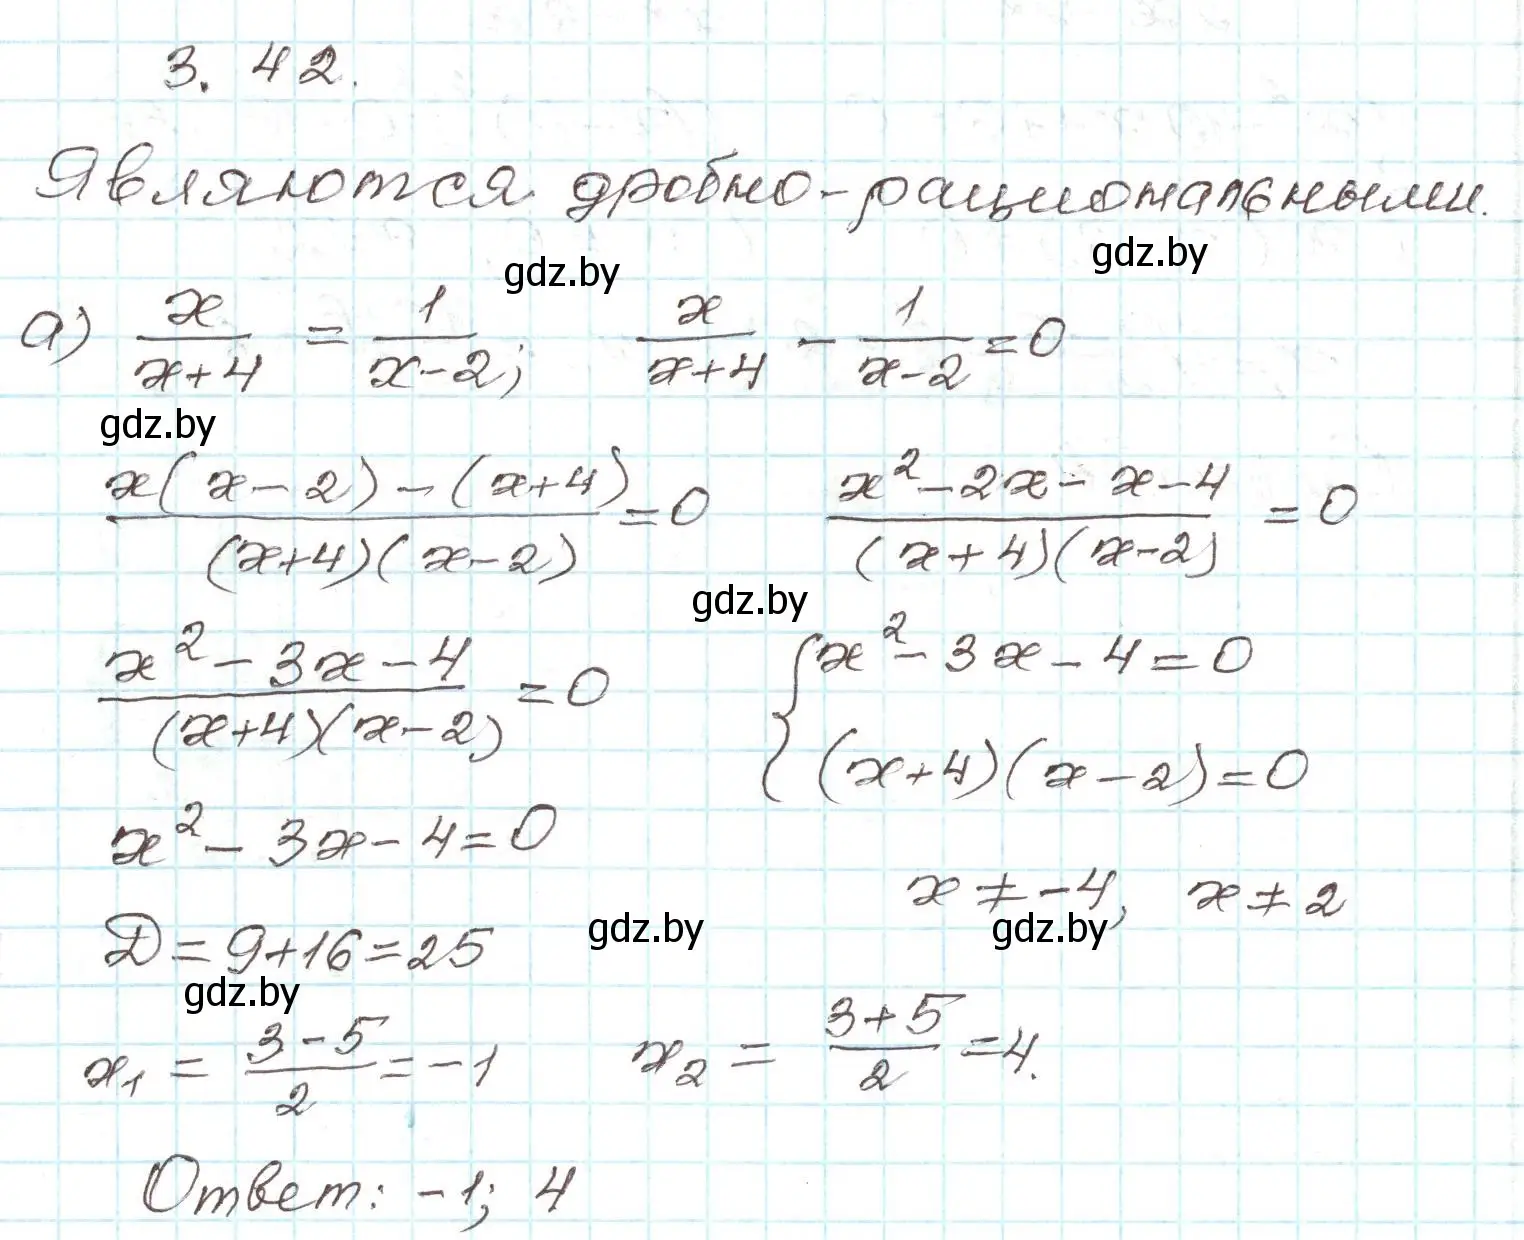 3. 42.
Являются дробно-рациональными.
gdz.by
gdz.by
а) x/(x+4) = 1/(x-2); x/(x+4) - 1/(x-2) = 0
gdz.by
(x(x-2)-(x+4))/((x+4)(x-2)) = 0 (x²-2x-x-4)/((x+4)(x-2)) = 0
gdz.by
(x²-3x-4)/((x+4)(x-2)) = 0 { x²-3x-4=0
(x+4)(x-2)=0
x²-3x-4=0
x≠-4, x≠2
gdz.by
gdz.by
D=9+16=25
gdz.by
x₁ = (3-5)/2 = -1 x₂ = (3+5)/2 = 4.
Ответ: -1; 4